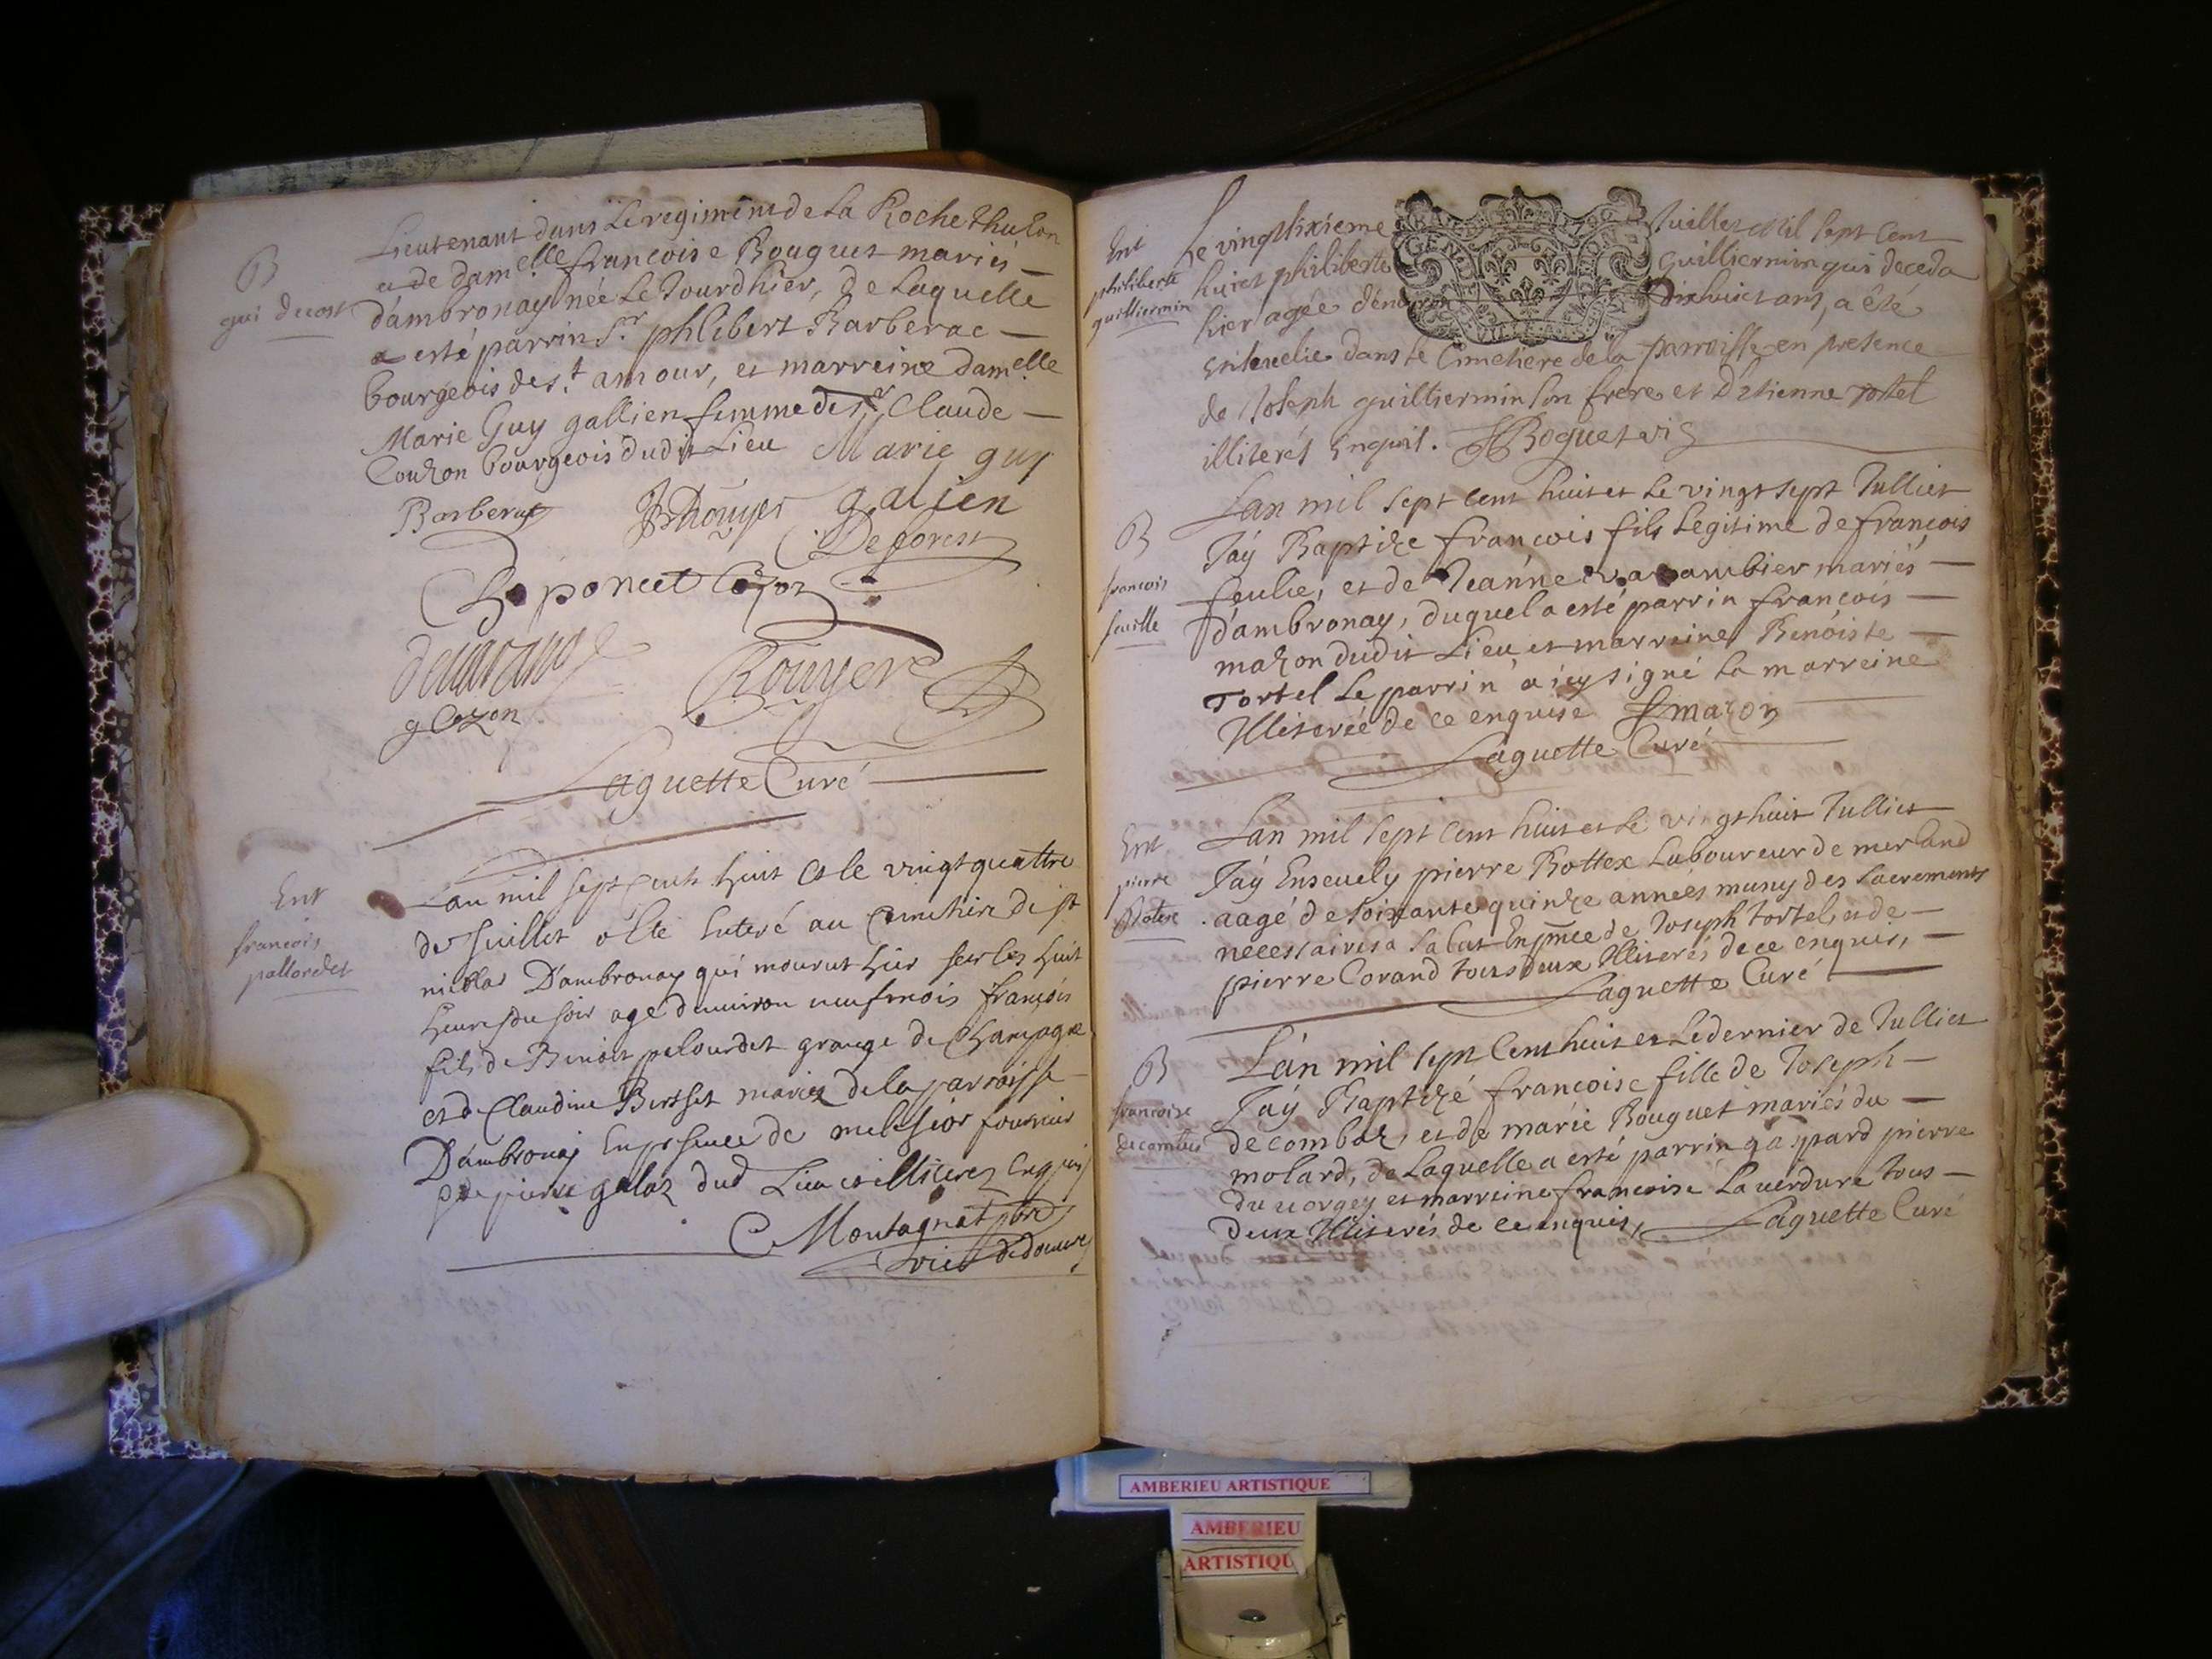 B
gui decost
Lieutenant dans Le regiment de La Roche Thulon
a de dam.elle francoise Bouguet mariés
d'ambronay née Le Jourdhier, de Laquelle
a esté parrin S.r phlibert Barberac
bourgeois de s.t amour, et marreine dam.elle
Marie Guy gallien femme de S.r Claude
Couzon bourgeois dudit Lieu Marie guy
galien
Barberac
JBRouyer
Deforest
poncet
g Cozon
Rouyere
Laguette Curé
Ent
francois
pallordet
Lan mil sept cents huit et le vingt quattre
de Juillet a esté Enteré au Cimetiere de st
nicolas D'ambronay qui mourut hier sur les huit
heures du soir agé d'environ neuf mois françois
fils de Benoit pelourdet granger de Champagne
et de Claudine Berthet mariez de la parroisse
D'ambronay En presence de melchior fournier
et de pierre galaz dud Lieu illiterez Enquis
Montagnat pbre
vic de douvres
Ent
philiberte
guilliermin
Le vingt sixieme Juillet Mil sept Cent
huict philiberte Guilliermin qui deceda
hier agée d'environ Dixhuict ans, a êté
Ensevelie dans le Cimetiere de la parroisse en presence
de Joseph guilliermin son frere et d'Etienne tortel
illiterés Enquis. Boguet vic
B
francois
feuille
Lan mil sept cent huit et Le vingt sept Julliet
Jaÿ Baptize francois fils Legitime de françois
feulie, et de Jeanne mariés
d'ambronay, duquel a esté parrin françois
mazon dudit Lieu et marreine Benoiste
Tortel Le parrin a icy signé La marreine
Illiterée de ce enquise f mazon
Laguette Curé
Ent
pierre
Botex
Lan mil sept Cent huit et Le vingt huit Julliet
Jaÿ Ensevely pierre Bottex Laboureur de merland
aagé de soixante quinze années muny des sacrements
necessaires a salut En pnce de Joseph tortel et de
pierre Corand tous deux Illiterés de ce enquis,
Laguette Curé
B
francoise
decombes
Lán mil sept Cent huit et Le dernier de Julliet
Jaÿ Baptizé francoise fille de Joseph
decombaz, et de marie Bouguet mariés du
molard, de Laquelle a esté parrin gaspard pierre
du vorgey et marreine francoise La verdure tous
Deux Illiterés de ce enquis, Laguette Curé
AMBERIEU ARTISTIQUE
AMBERIEU
ARTISTIQU